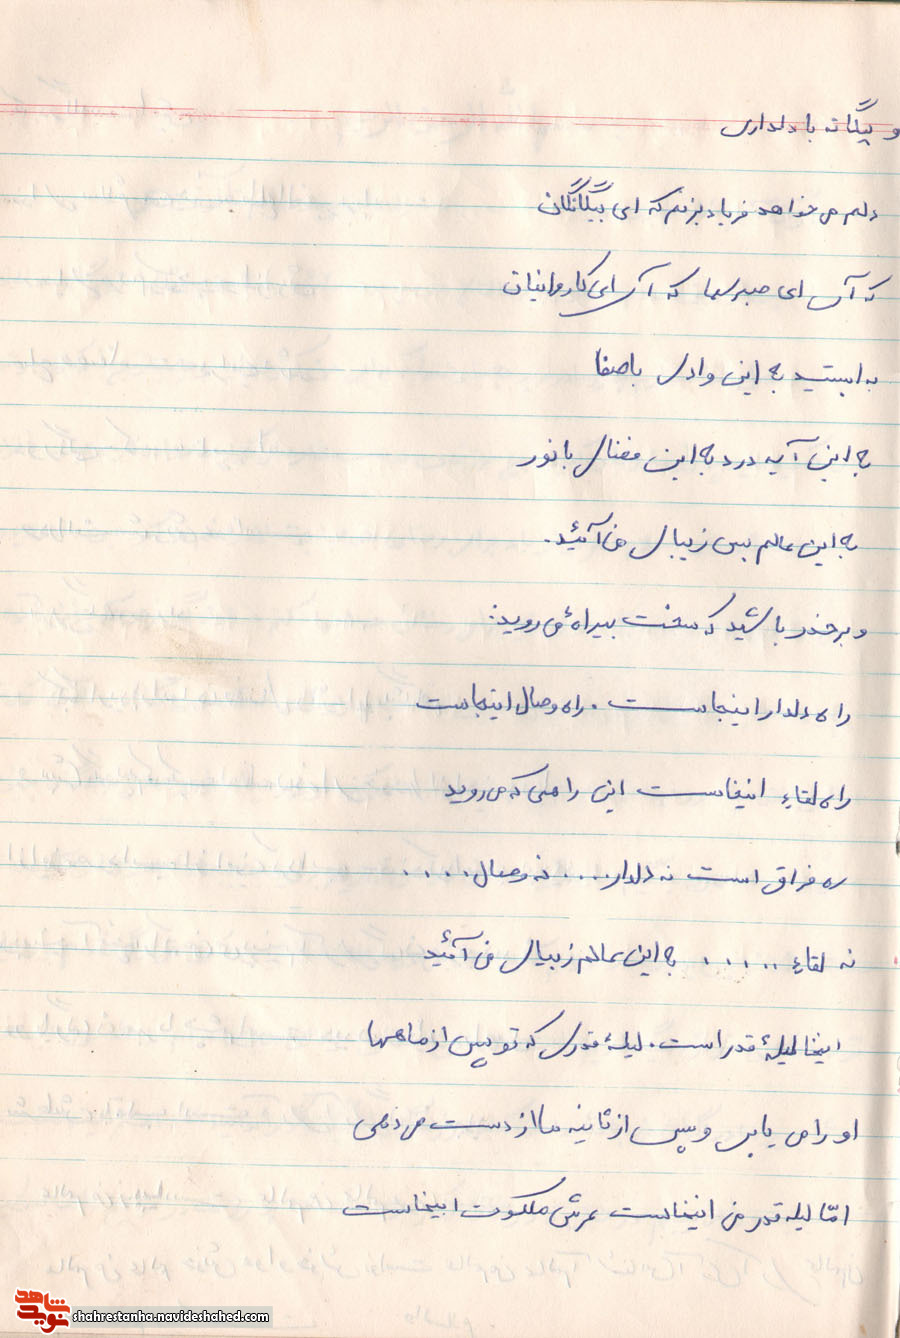 و یگانه با دلداری
دلم می خواهد فریاد بزنم که ای بیگانگان
که آی ای صبر شما که آی ای کاروانیان
به ایستید به این وادی باصفا
به این آیه درد به این فضای با نور
به این عالم بس زیبای من آئید.
و بر حذر باشید که سخت بیراهه می روید:
راه دلدار اینجاست. راه وصال اینجاست
راه لقاء اینجاست این راهی که می روید
ره فراق است نه دلدار.... نه وصال....
نه لقاء..... به این عالم زیبای من آئید
اینجا لیلهٔ قدر است. لیلهٔ قدری که تو پس از ماهها
او را می یابی و پس از ثانیه ها از دست می دهی
امّا لیله قدر من اینجاست عرش ملکوت اینجاست
نوید شاهد
shahrestanha.navideshahed.com